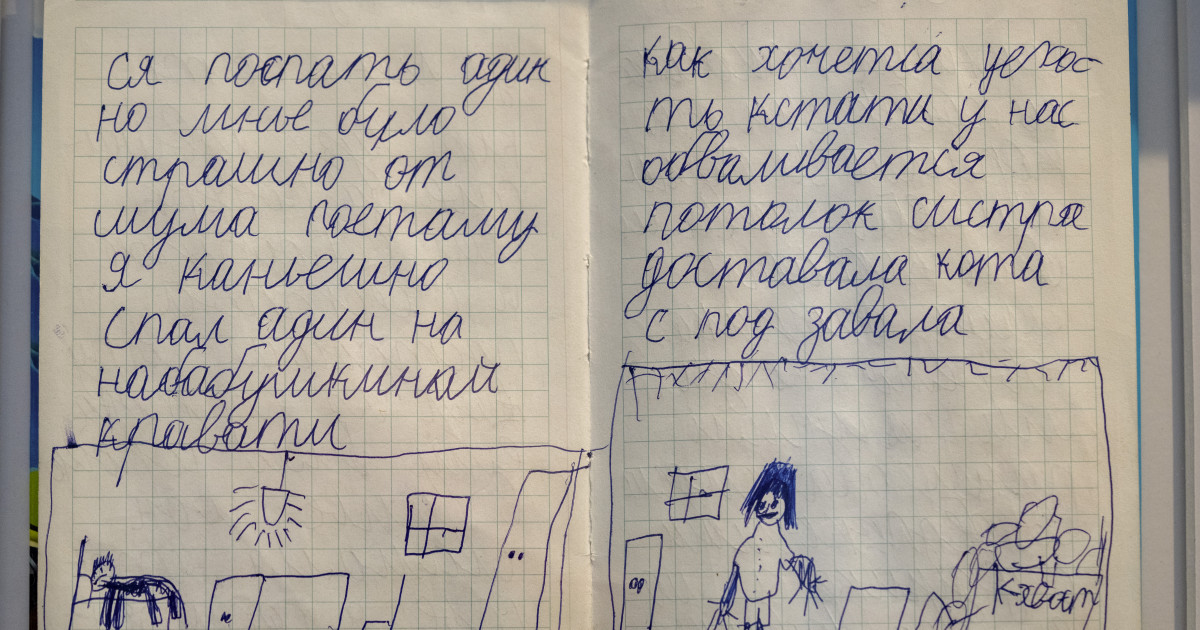 ся поспать адин
но мнье було
страшно от
шума поетаму
я каньешно
спал адин на
набабушкиной
кравати
как хочетса уехос-
ть кстати у нас
обваливается
потолок систра
доставала кота
с под завала
К-явост